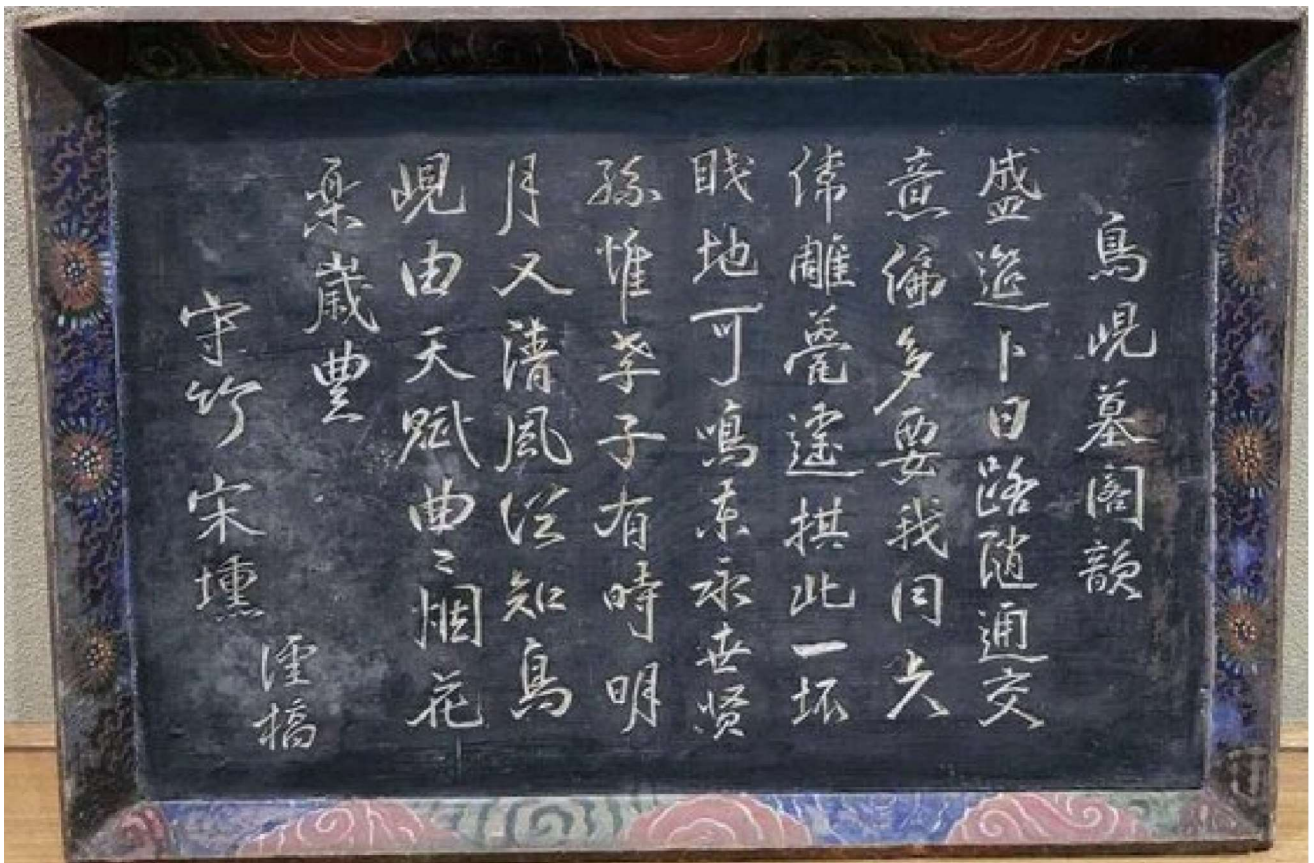 鳥峴墓閣韻
盛筵卜日路隨通交
意偏多要我同
雕甍遽拱此一坏
賤地可鳴東永世賢
孫惟孝子有時明
月又淸風從知鳥
峴由天賦曲〻烟花
樂歲豊
守竹宋壎
謹稿